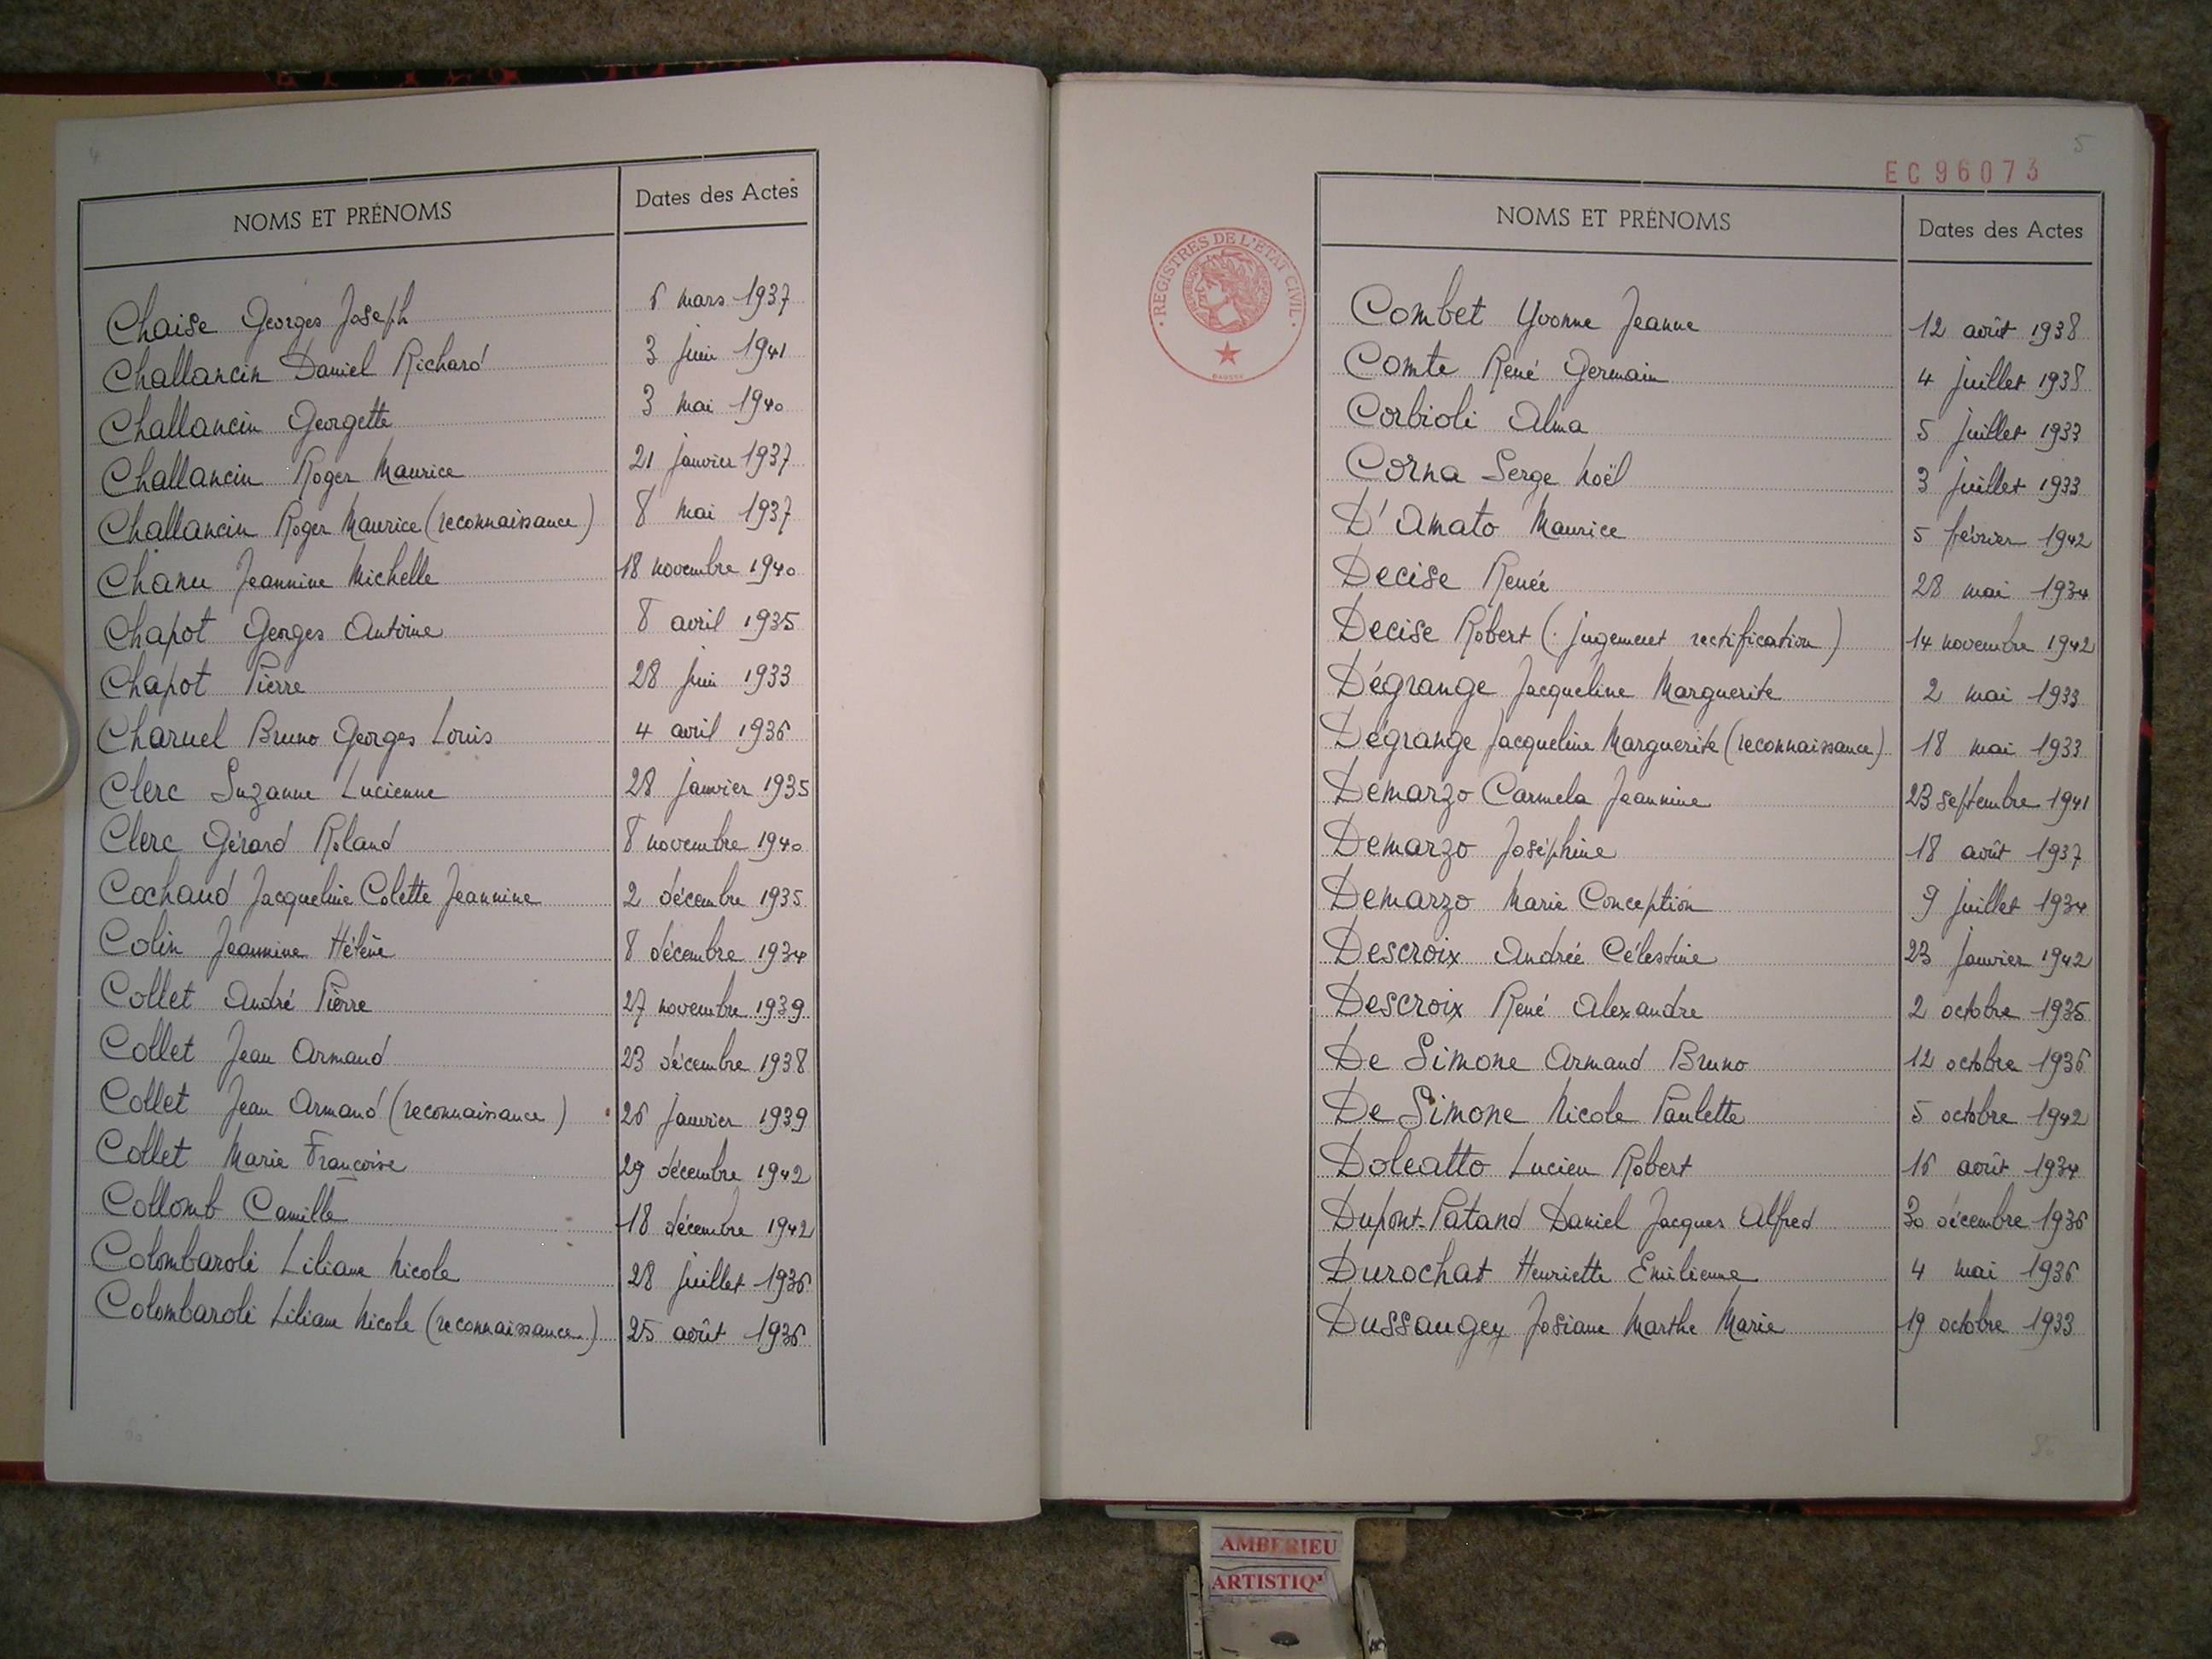 4
NOMS ET PRÉNOMS Dates des Actes
Chaise Georges Joseph 6 mars 1937
Challancin Daniel Richard 3 juin 1941
Challancin Georgette 3 mai 1940
Challancin Roger Maurice 21 janvier 1937
Challancin Roger Maurice (reconnaissance) 8 mai 1937
Chanu Jeannine Michelle 18 novembre 1940
Chapot Georges Antoine 8 avril 1935
Chapot Pierre 28 juin 1933
Charuel Bruno Georges Louis 4 avril 1936
Clerc Suzanne Lucienne 28 janvier 1935
Clerc Gérard Roland 8 novembre 1940
Cochaud Jacqueline Colette Jeannine 2 décembre 1935
Colin Jeannine Hélène 8 décembre 1934
Collet André Pierre 27 novembre 1939
Collet Jean Armand 23 décembre 1938
Collet Jean Armand (reconnaissance) 26 janvier 1939
Collet Marie Françoise 29 décembre 1942
Collomb Camille 18 décembre 1942
Colombaroli Liliane Nicole 28 juillet 1936
Colombaroli Liliane Nicole (reconnaissance) 25 août 1936
5
EC96073
REGISTRES DE L'ÉTAT CIVIL
NOMS ET PRÉNOMS Dates des Actes
Combet Yvonne Jeanne 12 août 1938
Comte René Germain 4 juillet 1938
Corbioli Alma 5 juillet 1933
Corna Serge Noël 3 juillet 1933
D'Amato Maurice 5 février 1942
Decise Renée 28 mai 1934
Decise Robert (jugement rectification) 14 novembre 1942
Dégrange Jacqueline Marguerite 2 mai 1933
Dégrange Jacqueline Marguerite (reconnaissance) 18 mai 1933
Demarzo Carmela Jeannine 23 septembre 1941
Demarzo Joséphine 18 août 1937
Demarzo Marie Conception 9 juillet 1934
Descroix Andrée Célestine 23 janvier 1942
Descroix René Alexandre 2 octobre 1935
De Simone Armand Bruno 12 octobre 1936
De Simone Nicole Paulette 5 octobre 1942
Doleatto Lucien Robert 16 août 1934
Dupont-Patand Daniel Jacques Alfred 30 décembre 1936
Durochat Henriette Emilienne 4 mai 1936
Dussaugey Josiane Marthe Marie 19 octobre 1933
AMBERIEU
ARTISTIQ